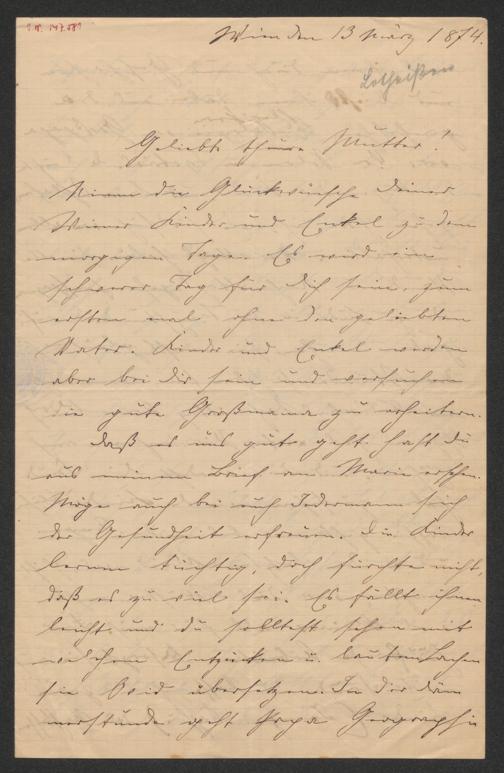 I.N. 147.581
Wien den 13 März 1874.
Lotheißen
Geliebte theure Mutter!
Nimm die Glückwünsche Deiner
Wiener Kinder und Enkel zu dem
morgigen Tage. Es wird ein
schwerer Tag für Dich sein, zum
ersten mal ohne den geliebten
Vater. Kinder und Enkel werden
aber bei Dir sein und versuchen
die gute Großmama zu erheitern.
Daß es uns gut geht hast Du
aus meinem Brief an Marie ersehen.
Möge auch bei euch Jedermann sich
der Gesundheit erfreuen. Die Kinder
lernen tüchtig, doch fürchte nicht,
daß es zu viel sei. Es fällt ihnen
leicht und du solltest sehen mit
welchem Entzücken u. lautem Lachen
sie Ovid übersetzen. In der Däm
merstunde geht Papa Geographie